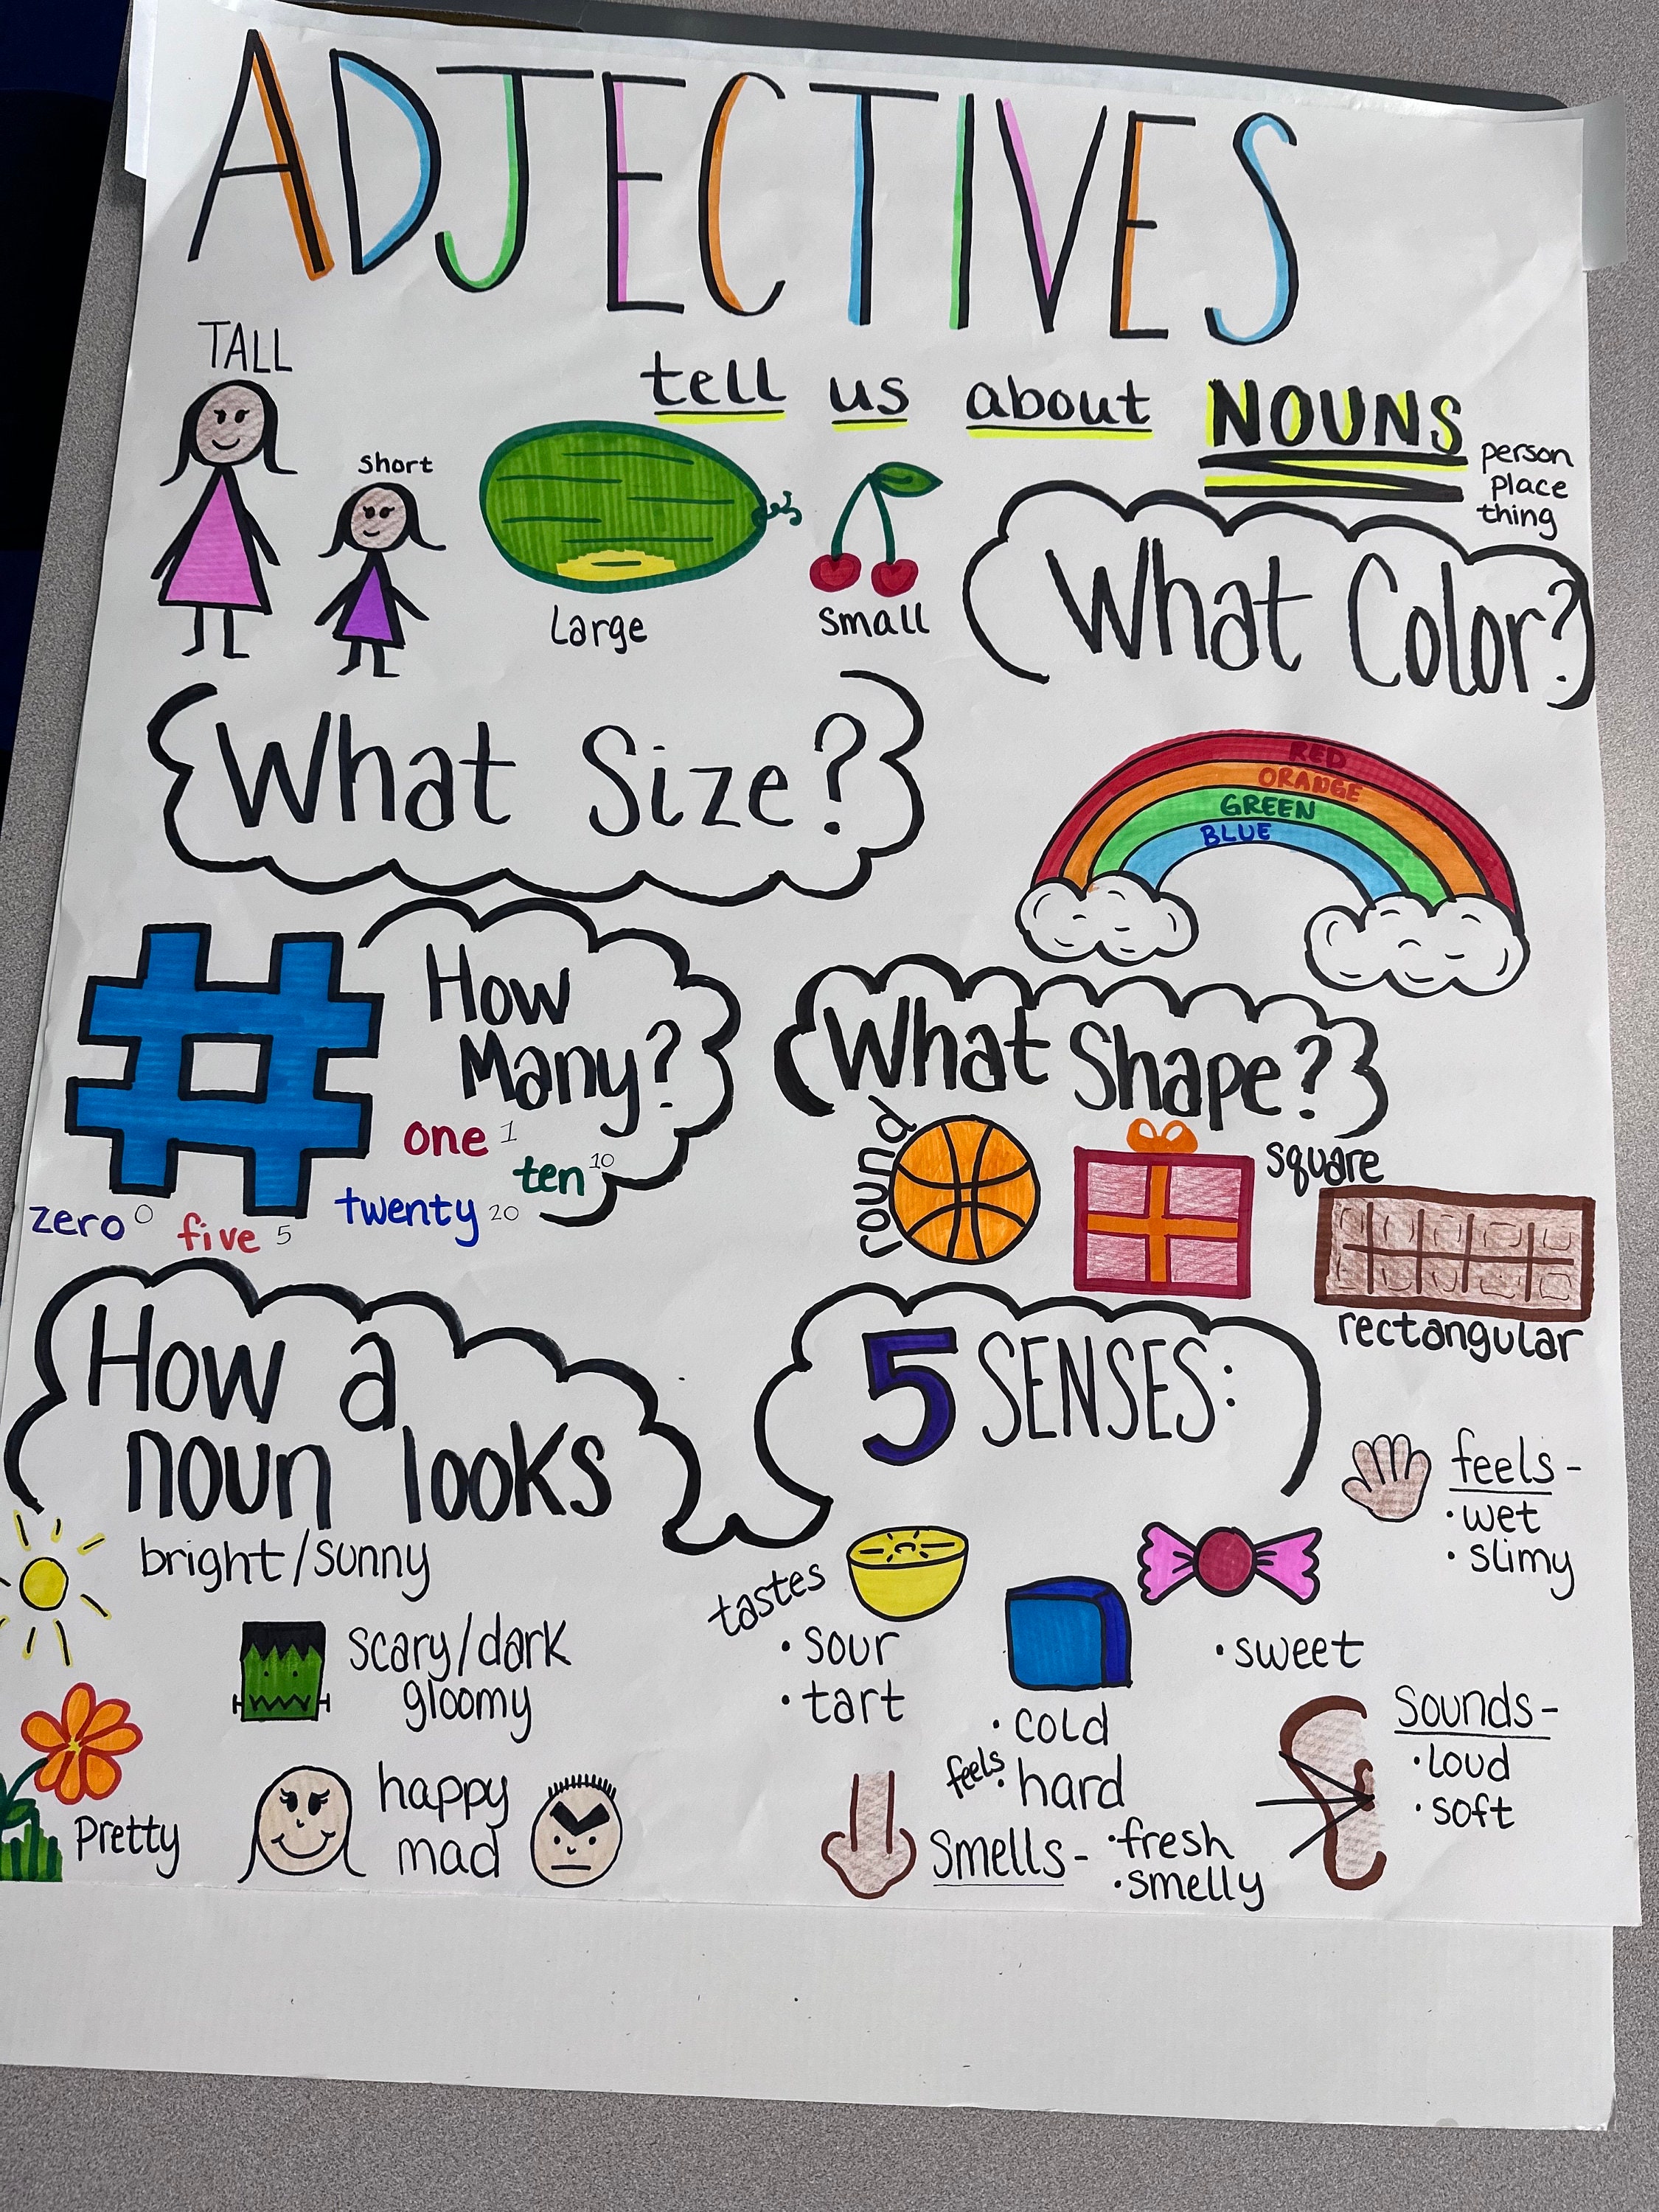 ADJECTIVES
tell us about NOUNS
person
place
thing
TALL
short
Large
small
What Color?
What Size?
RED
ORANGE
GREEN
BLUE
How
Many?
one 1
ten 10
twenty 20
zero 0
five 5
What Shape?
round
square
rectangular
How a
noun looks
bright/sunny
scary/dark
gloomy
Pretty
happy
mad
5 SENSES:
feels-
• wet
• slimy
tastes
• sour
• tart
• sweet
• cold
feels • hard
Sounds-
• loud
• soft
Smells- • fresh
• smelly